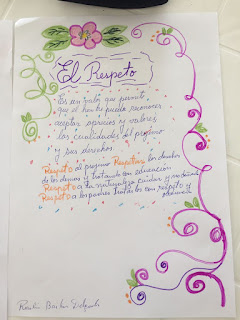 El Respeto
Es un valor que permite
que el hombre pueda reconocer
aceptar aprecios y valores
las cualidades del projimo
y sus derechos.
Respeto al projimo Respetare los derechos
de los demas y tratando con educación
Respeto a la naturaleza cuidar y
Respeto a los padres tratarlos con respeto y